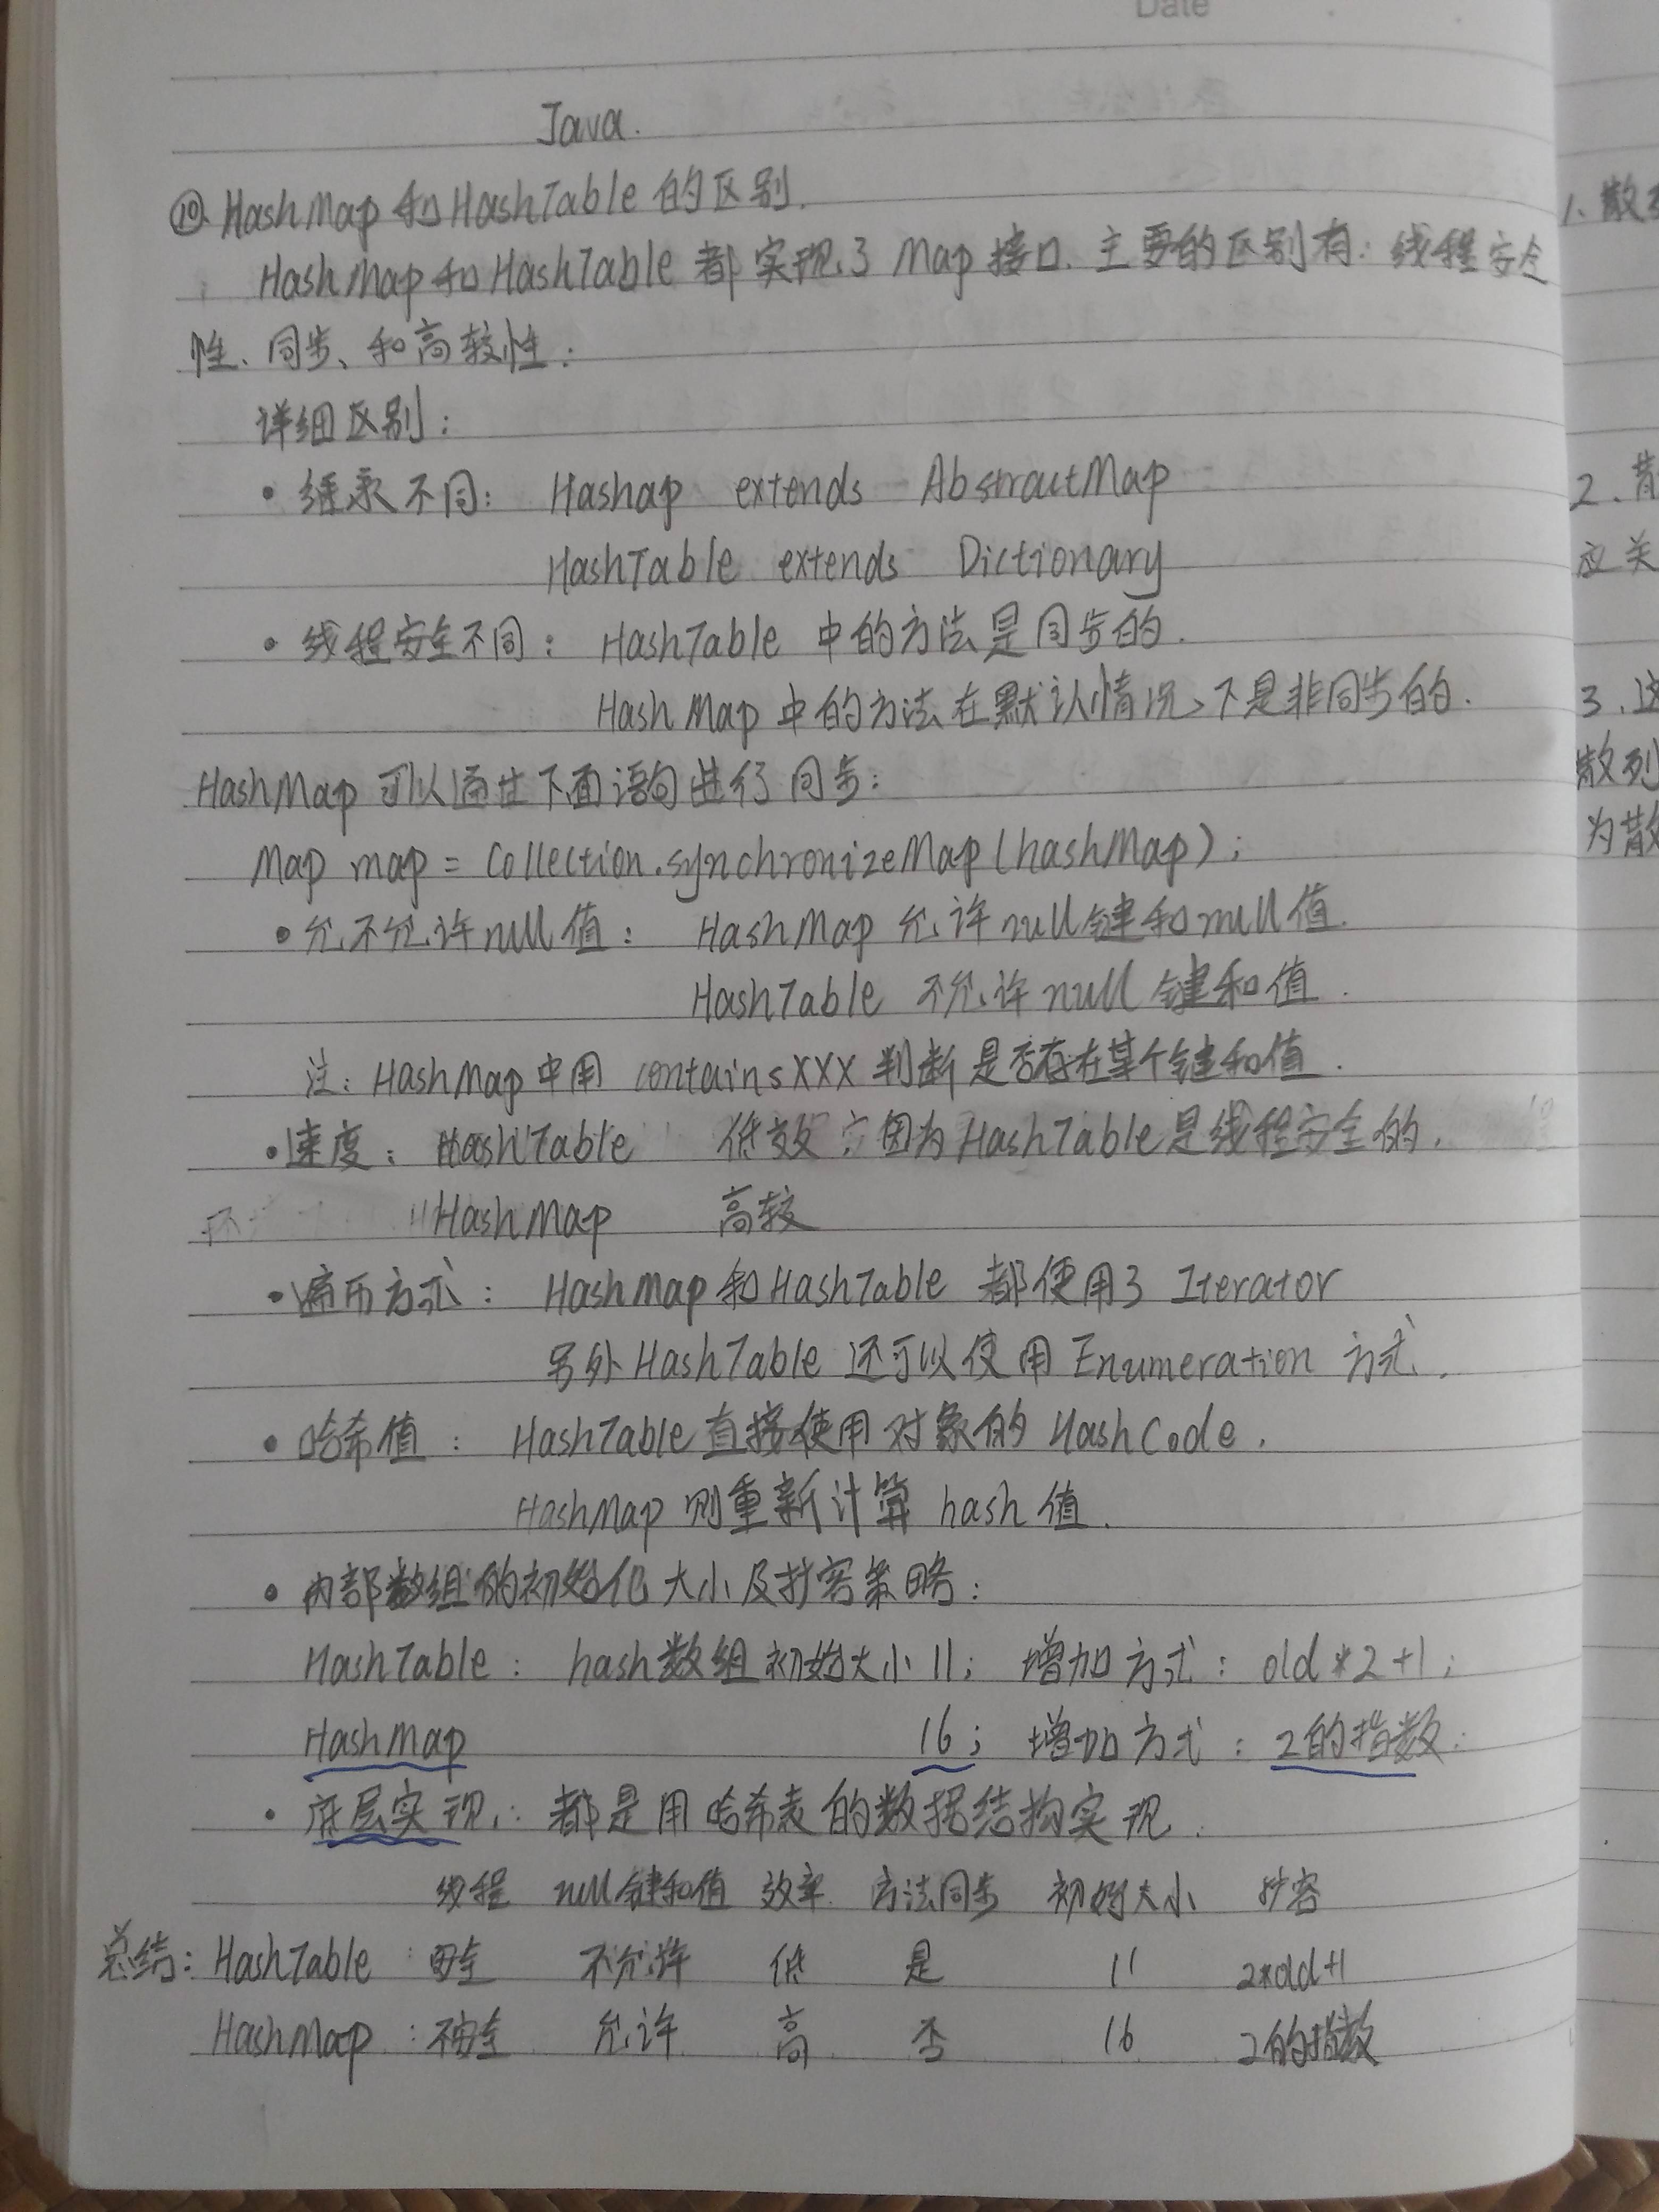 Date
Java.
⑩ HashMap 和 HashTable 的区别.
HashMap 和 HashTable 都实现了 Map 接口. 主要的区别有: 线程安全
性、同步、和高较性:
详细区别:
• 继承不同: Hashap extends AbstractMap
HashTable extends Dictionary
• 线程安全不同: HashTable 中的方法是同步的.
HashMap 中的方法在默认情况下是非同步的.
HashMap 可以通过下面语句进行同步:
Map map = Collection.synchronizeMap(hashMap);
• 允不允许null值: HashMap 允许null键和null值.
HashTable 不允许null 键和值.
注: HashMap中用 containsXXX 判断是否存在某个键和值.
• 速度: HashTable 低效 因为HashTable是线程安全的.
HashMap 高较
• 遍历方式: HashMap和HashTable 都使用了 Iterator
另外 HashTable 还可以使用 Enumeration 方式.
• 哈希值: HashTable直接使用对象的 HashCode.
HashMap 则重新计算 hash 值.
• 内部数组的初始化大小及扩容策略:
HashTable: hash数组初始大小 11; 增加方式: old*2+1;
HashMap 16; 增加方式: 2的指数:
• 底层实现: 都是用哈希表的数据结构实现.
线程 null键和值 效率 方法同步 初始大小 扩容
总结: HashTable: 安全 不允许 低 是 11 2*old+1
HashMap: 不安全 允许 高 否 16 2的指数
1、散
2、
应关
3、这
散列
为散